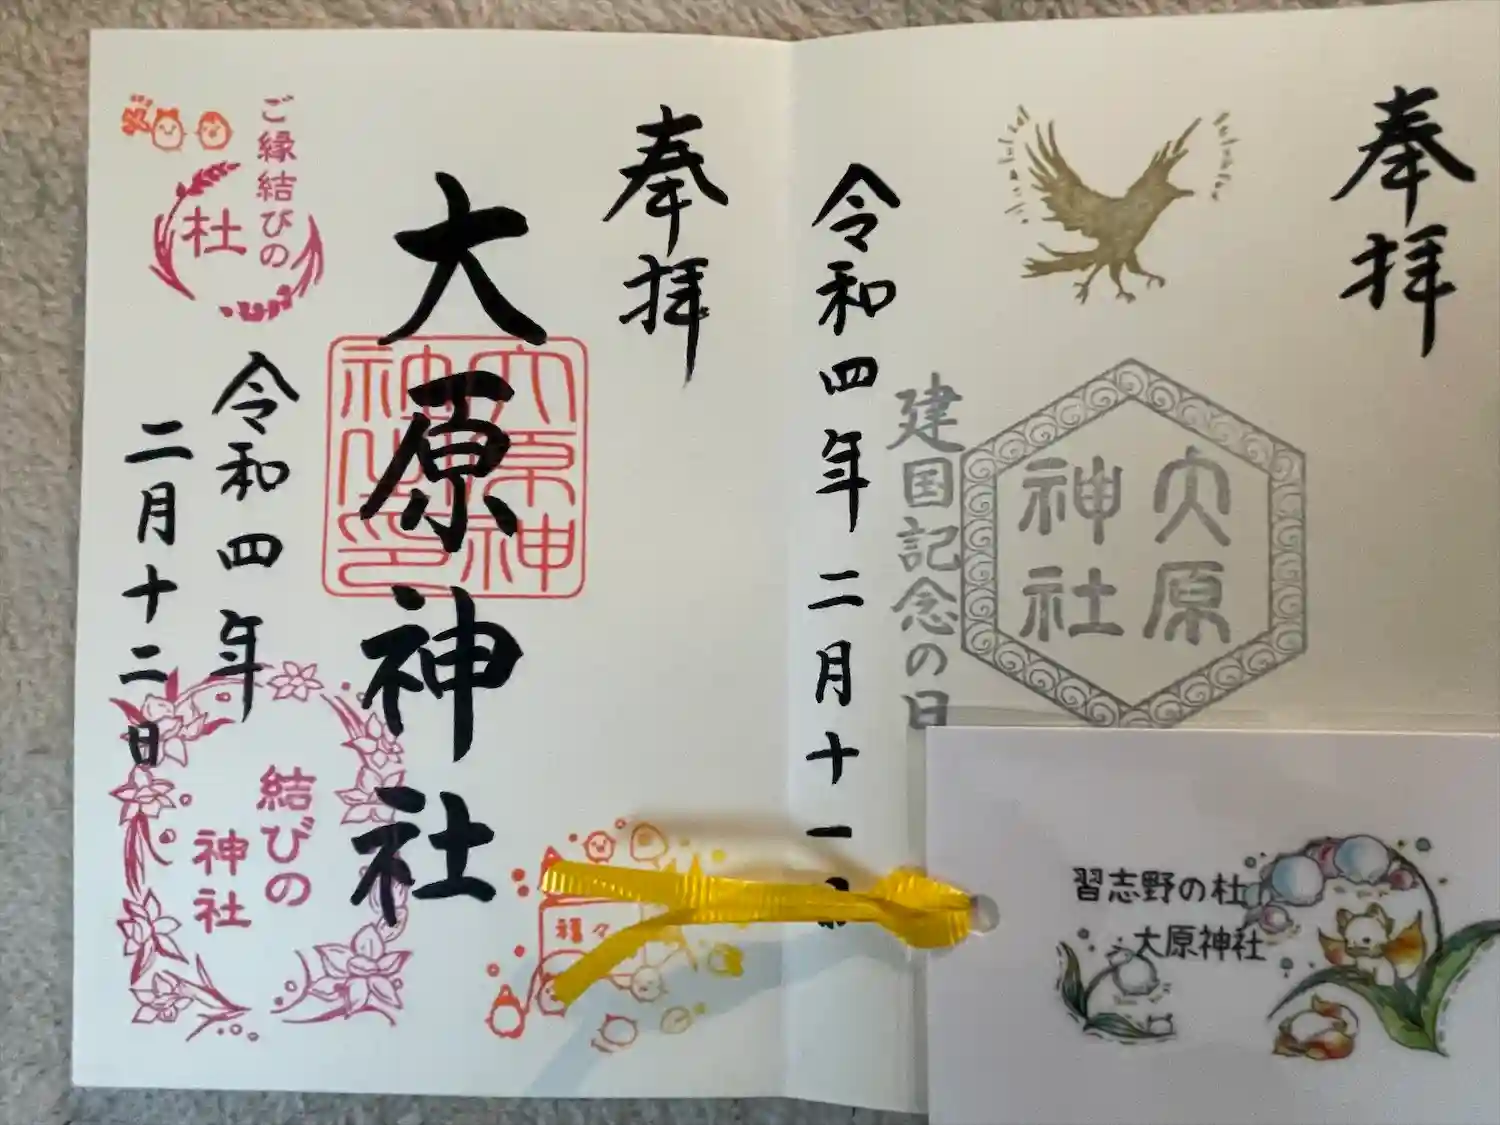 奉拝
大原
神社
建国記念の日
令和四年二月十一
奉拝
大原神社
大原神
ご縁結びの
杜
令和四年
二月十二日
結びの
神社
福々
習志野の杜
大原神社